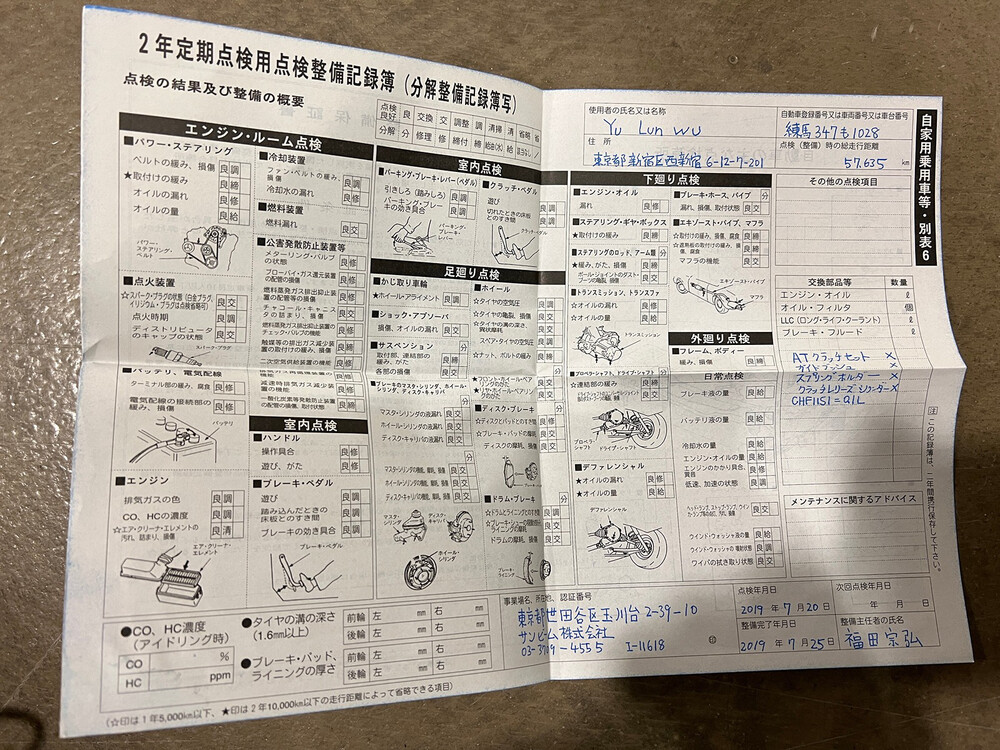 2年定期点検用点検整備記録簿（分解整備記録簿写）
点検の結果及び整備の概要
点検良好 良 交換 交 調整 調 清掃 清 省略 省
分解 分 修理 修 締付 締 給油(水) 給 該当なし ／
エンジン・ルーム点検
■パワー・ステアリング
ベルトの緩み、損傷 良 調
★取付けの緩み 良 締
オイルの漏れ 良 修
オイルの量 良 給
パワー・ステアリング・ベルト
■点火装置
☆スパーク・プラグの状態（白金プラグ、イリジウム・プラグは点検省略可） 良 交
点火時期 良 調
ディストリビュータのキャップの状態 良 交
スパーク・プラグ
■バッテリ、電気配線
ターミナル部の緩み、腐食 良 修
電気配線の接続部の緩み、損傷 良 修
バッテリ
■エンジン
排気ガスの色 良 調
CO、HCの濃度 良 調
☆エア・クリーナ・エレメントの汚れ、詰まり、損傷 良 清
エア・クリーナ・エレメント
■冷却装置
ファン・ベルトの緩み、損傷 良 調
冷却水の漏れ 良 修
■燃料装置
燃料漏れ 良 交
■公害発散防止装置等
メターリング・バルブの状態 良 修
ブローバイ・ガス還元装置の配管の損傷 良 修
燃料蒸発ガス排出抑止装置の配管等の損傷 良 修
チャコール・キャニスタの詰まり、損傷 良 交
燃料蒸発ガス排出抑止装置のチェックバルブの機能 良 修
触媒等の排出ガス減少装置の取付けの緩み、損傷 良 締
二次空気供給装置の機能 良 修
減速時排気ガス減少装置の機能 良 修
一酸化炭素等発散防止装置の配管の損傷、取付状態 良 修
室内点検
■ハンドル
操作具合 良 修
遊び、がた 良 修
■ブレーキ・ペダル
遊び 良 調
踏み込んだときの床板とのすき間 良 調
ブレーキの効き具合 良 調
ブレーキ・ペダル
室内点検
■パーキング・ブレーキ・レバー（ペダル）
引きしろ（踏みしろ） 良 調
パーキング・ブレーキの効き具合 良 調
パーキング・ブレーキ・レバー
■クラッチ・ペダル
遊び 良 調
切れたときの床板とのすき間 良 調
クラッチ・ペダル
足廻り点検
■かじ取り車輪
★ホイール・アライメント 良 調
■ショック・アブソーバ
損傷、オイルの漏れ 良 交
■サスペンション 分
取付部、連結部の緩み、がた 良 締
各部の損傷 良 交
■ブレーキのマスタ・シリンダ、ホイール・シリンダ、ディスク・キャリパ 分
マスタ・シリンダの液漏れ 良 交
ホイール・シリンダの液漏れ 良 交
ディスク・キャリパの液漏れ 良 交
マスタ・シリンダの機能、摩耗、損傷 良 交
ホイール・シリンダの機能、摩耗、損傷 良 交
ディスク・キャリパの機能、摩耗、損傷 良 交
マスタ・シリンダ
ディスク・キャリパ
ホイール・シリンダ
■ホイール
☆タイヤの空気圧
☆タイヤの亀裂、損傷
☆タイヤの溝の深さ、異状摩耗
スペア・タイヤの空気圧
☆ナット、ボルトの緩み
★フロント・ホイール・ベアリングのがた
★リヤ・ホイール・ベアリングのがた
■ディスク・ブレーキ
☆ディスクとパッドとのすき間
☆ブレーキ・パッドの摩耗
ディスクの摩耗、損傷
■ドラム・ブレーキ
☆ドラムとライニングとのすき間
ドラムの摩耗、損傷
ブレーキ・ライニング
自家用乗用車等・別表6
使用者の氏名又は名称
Yu Lun WU
住所
東京都新宿区西新宿6-12-7-201
自動車登録番号又は車両番号又は車台番号
練馬347も1028
点検（整備）時の総走行距離
57,635 km
下廻り点検
■エンジン・オイル
漏れ 良 修
■ステアリング・ギヤ・ボックス
★取付けの緩み 良 締
■ステアリングのロッド、アーム類 分
★緩み、がた、損傷 良 締
ボール・ジョイントのダスト・ブーツの亀裂、損傷 良 交
■トランスミッション、トランスファ
☆オイルの漏れ 良 修
☆オイルの量 良 給
トランスミッション
■プロペラ・シャフト、ドライブ・シャフト 分
★連結部の緩み 良 締
プロペラ・シャフト
ドライブ・シャフト
■デファレンシャル
★オイルの漏れ 良 修
★オイルの量 良 給
デファレンシャル
■ブレーキ・ホース、パイプ 分
漏れ、損傷、取付状態 良 交
■エキゾースト・パイプ、マフラ
☆取付けの緩み、損傷、腐食 良 締
☆遮熱板の取付けの緩み、損傷、腐食 良 締
マフラの機能 良 交
エキゾースト・パイプ
マフラ
外廻り点検
■フレーム、ボディー
緩み、損傷 良 締
日常点検
ブレーキ液の量 良 給
バッテリ液の量 良 給
冷却水の量 良 給
エンジン・オイルの量 良 給
エンジンのかかり具合、異音 良 修
低速、加速の状態 良 調
ウインド・ウォッシャ液の量 良 給
ウインド・ウォッシャの噴射状態 良 調
ワイパの拭き取り状態 良 交
その他の点検項目
交換部品等 数量
エンジン・オイル ℓ
オイル・フィルタ 個
LLC（ロング・ライフ・クーラント） ℓ
ブレーキ・フルード ℓ
ATクラッチセット ×
ガイドブッシュ ×
スプリングホルダー ×
クラッチレリーズシリンダー ×
CHF11S1=01L
メンテナンスに関するアドバイス
注 この記録簿は、二年間携行保存して下さい。
●CO、HC濃度（アイドリング時）
CO %
HC ppm
●タイヤの溝の深さ（1.6mm以上）
前輪 左 mm 右 mm
後輪 左 mm 右 mm
●ブレーキ・パッド、ライニングの厚さ
前輪 左 mm 右 mm
後輪 左 mm 右 mm
（☆印は1年5,000km以下、★印は2年10,000km以下の走行距離によって省略できる項目）
事業場名、所在地、認証番号
東京都世田谷区玉川台2-39-10
サンビーム株式会社
03-3709-4555 I-11618
点検年月日
2019年7月20日
次回点検年月日
年 月 日
整備完了年月日
2019年7月25日
整備主任者の氏名
福田宗弘